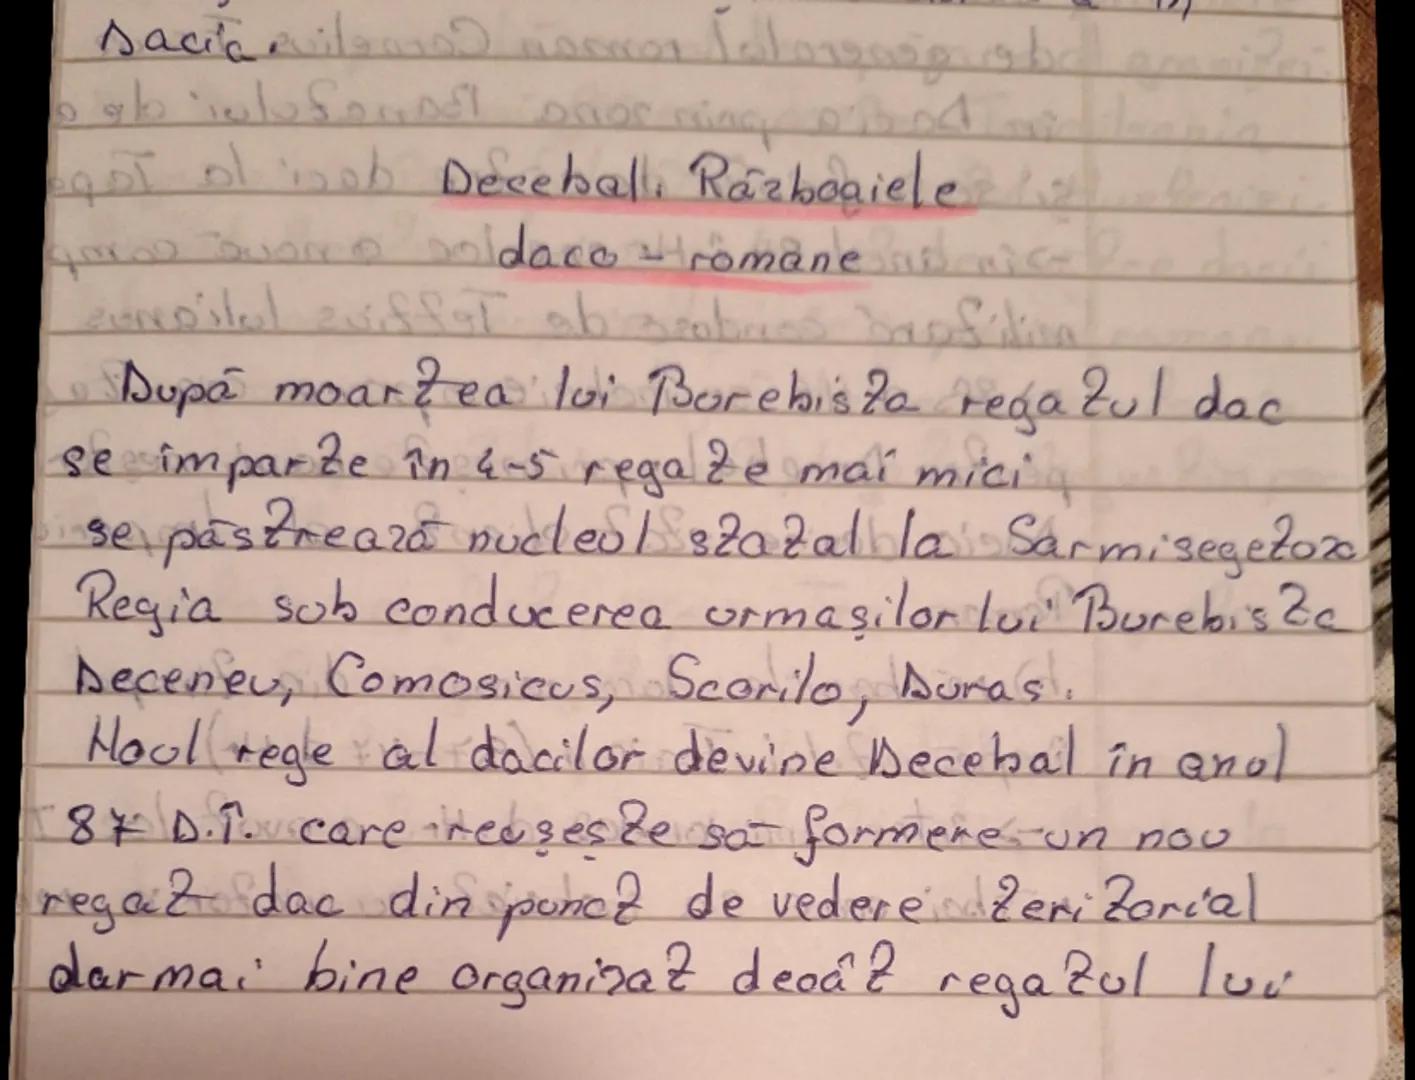 Dacia.
Decebal. Războaiele
daco - romane
După moartea lui Burebista regatul dac
se împarte în 4-5 regate mai mici
se păstrează nucleul statal la Sarmisegetoza
Regia sub conducerea urmașilor lui Burebista
Deceneu, Comosicus, Scorilo, Duras.
Noul rege al dacilor devine Decebal în anul
87 D.Î. care reușește să formere un nou
regat dac din punct de vedere teritorial
dar mai bine organizat decât regatul lui